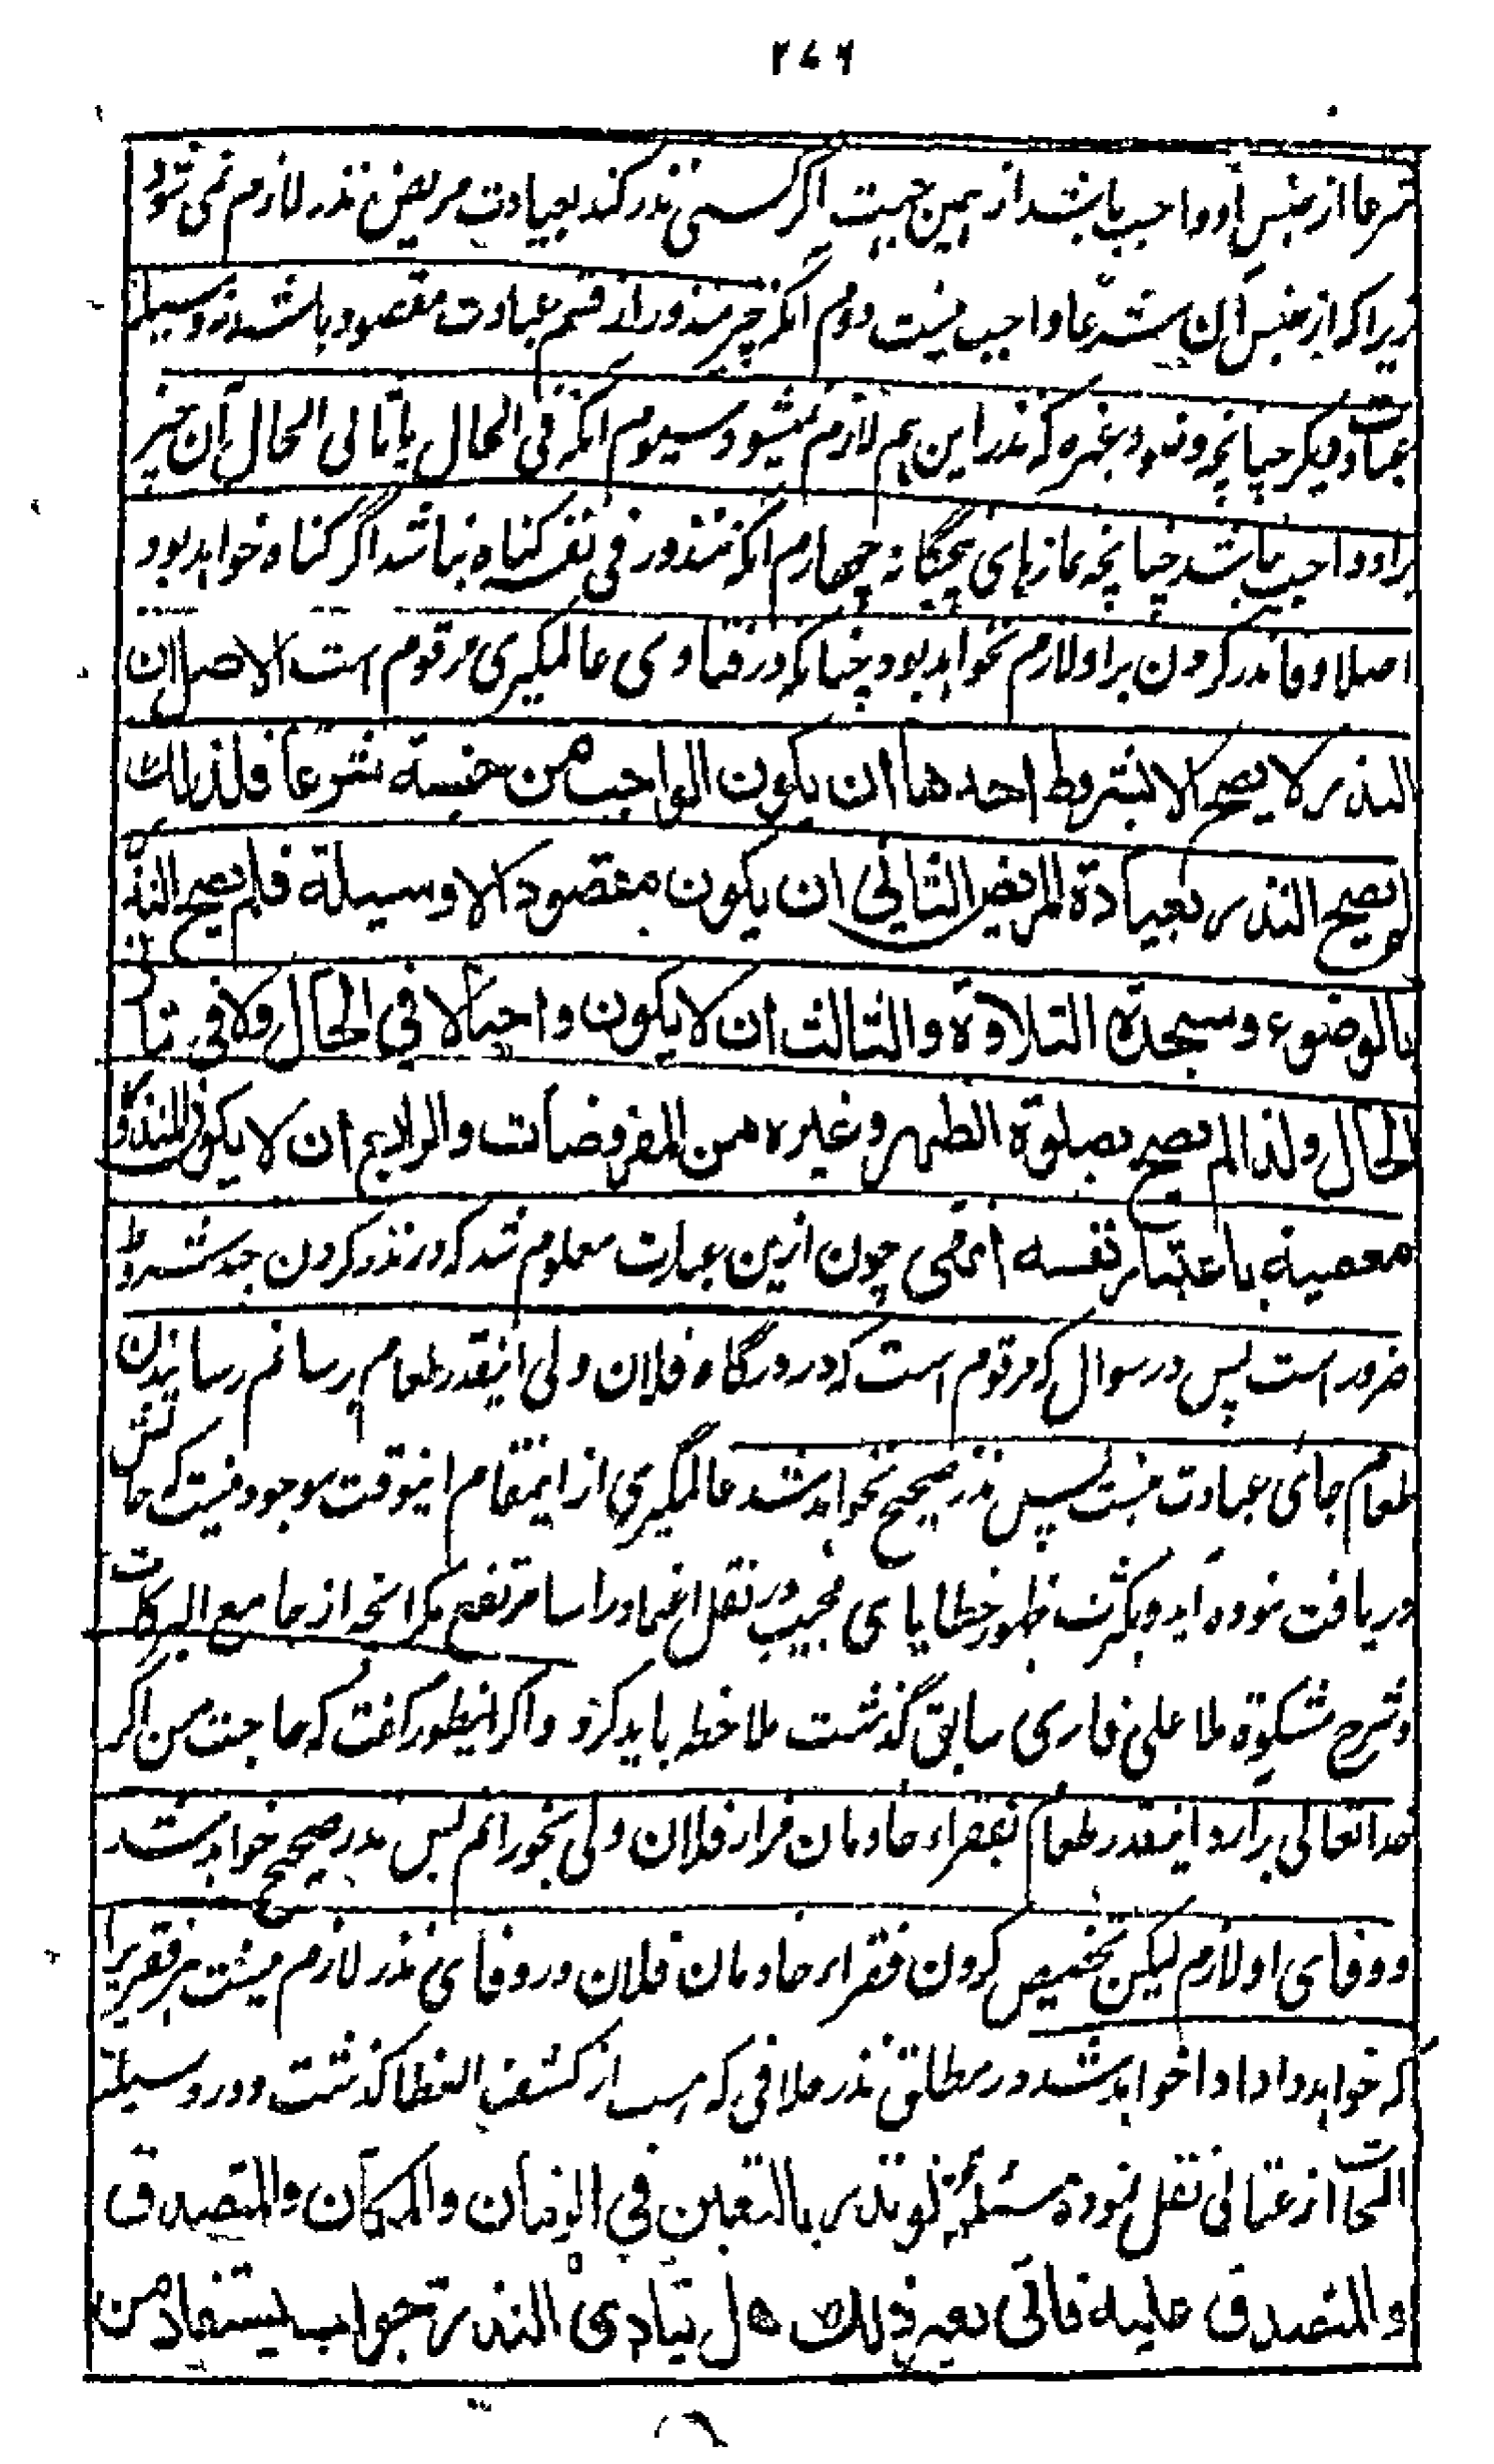 ۲۷۶
شرعا از جنس او واجب باشد از ہمین جہت اگر کسی نذر کند بعیادت مریض نذر لازم نمی شود
زیرا کہ از جنس آن شرعا واجب نیست دوم آنکہ چیز منذور از قسم عبادت مقصود باشد نہ وسیلہ
عبادت دیگر چنانچہ وضو وغیرہ کہ نذر این ہم لازم نمیشود سیوم آنکہ فی الحال یا تالی الحال آن چیز
براو واجب نباشد چنانچہ نمازہای پنجگانہ چہارم آنکہ منذور فی نفسہ گناہ نباشد اگر گناہ خواہد بود
اصلا وفا نذر کردن براو لازم نخواہد بود چنانکہ در فتاوی عالمگیری مرقوم است الاصل ان
النذر لا یصح الا بشروط احدها ان یکون الواجب من جنسه شرعا فلذلک
لم یصح النذر بعیادة المریض الثانی ان یکون مقصودا لا وسیلة فلم یصح النذر
بالوضوء وسجدة التلاوة والثالث ان لا یکون واجبا لا فی الحال ولا فی ثانی
الحال ولذا لم یصح بصلوة الظهر وغیره من المفروضات والرابع ان لا یکون المنذور
معصیة باعتبار نفسه انتهی چون ازین عبارت معلوم شد کہ در نذر کردن چند شروط
ضرور است پس در سوال کہ مرقوم است کہ در درگاہ فلان ولی اینقدر طعام رسانم رسانیدن
طعام جای عبادت نیست پس نذر صحیح نخواہد شد عالمگیری از اینمقام اینوقت موجود نیست کہ حالش
دریافت نمودہ آید و بکثرت ظہور خطایای مجیب در نقل اعتماد راسا مرتفع مگر انچہ از جامع البرکات
وشرح مشکوة ملا علی قاری سابق گذشت ملاحظہ باید کرد و اگر اینطور گفت کہ حاجت من اگر
خدا تعالی برآرد اینقدر طعام بفقراء خادمان مزار فلان ولی بخورانم پس نذر صحیح خواہد شد
ووفای او لازم لیکن تخصیص کردن فقراء خادمان فلان در وفای نذر لازم نیست ہر فقیر را
کہ خواہد داد ادا خواہد شد در مطلق نذر خلافی کہ ہست از کشف الغطا گذشت ودر وسیلۃ
النجات از عتابی نقل نمودہ مسئلة لو نذر بالتعین فی الزمان والمکان والمتصدق
والمتصدق علیه فاتی بغیر ذلک هل یتادی النذر جواب یستفاد من